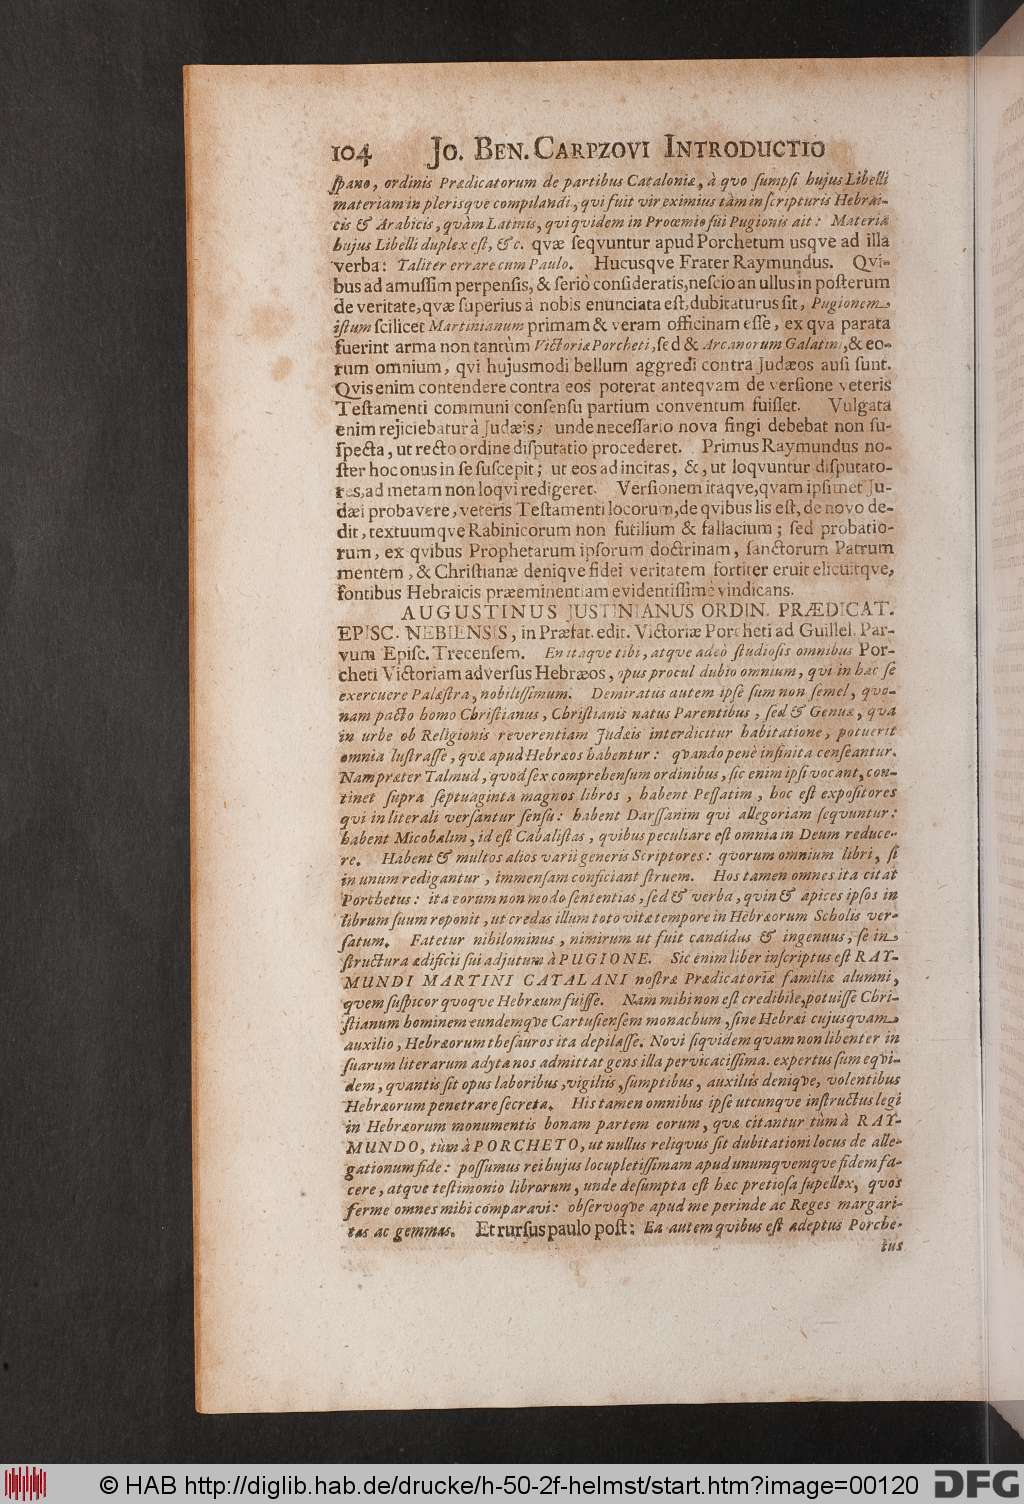 104 JO. BEN. CARPZOVI INTRODUCTIO
ſpano, ordinis Prædicatorum de partibus Cataloniæ, à qvo ſumpſi hujus Libelli
materiam in plerisque compilandi, qui fuit vir eximius tàm in ſcripturis Hebrai-
cis & Arabicis, quàm Latinis, qui quidem in Proœmio ſui Pugionis ait: Materia
hujus Libelli duplex eſt, &c. qvæ ſeqvuntur apud Porchetum usqve ad illa
verba: Taliter errare cum Paulo. Hucusqve Frater Raymundus. Qvi-
bus ad amuſſim perpenſis, & ſeriò conſideratis, neſcio an ullus in poſterum
de veritate, qvæ ſuperius à nobis enunciata eſt, dubitaturus ſit, Pugionem
iſtum ſcilicet Martinianum primam & veram officinam eſſe, ex qva parata
fuerint arma non tantùm Victoriæ Porcheti, ſed & Arcanorum Galatini, & eo-
rum omnium, qvi hujusmodi bellum aggredi contra Judæos auſi ſunt.
Qvis enim contendere contra eos poterat anteqvam de verſione veteris
Teſtamenti communi conſenſu partium conventum fuiſſet. Vulgata
enim rejiciebatur à Judæis; unde neceſſario nova fingi debebat non ſu-
ſpecta, ut recto ordine diſputatio procederet. Primus Raymundus no-
ſter hoc onus in ſe ſuscepit; ut eos ad incitas, &, ut loqvuntur diſputato-
res, ad metam non loqvi redigeret. Verſionem itaqve, qvam ipſimet Ju-
dæi probavere, veteris Teſtamenti locorum, de qvibus lis eſt, de novo de-
dit, textuumqve Rabinicorum non futilium & fallacium; ſed probatio-
rum, ex qvibus Prophetarum ipſorum doctrinam, ſanctorum Patrum
mentem, & Chriſtianæ deniqve fidei veritatem fortiter eruit elicuitqve,
fontibus Hebraicis præeminentiam evidentiſſimè vindicans.
AUGUSTINUS JUSTINIANUS ORDIN. PRÆDICAT.
EPISC. NEBIENSIS, in Præfat. edit. Victoriæ Porcheti ad Guillel. Par-
vum Epiſc. Trecenſem. En itaque tibi, atque adeò ſtudioſis omnibus Por-
cheti Victoriam adverſus Hebræos, opus procul dubio omnium, qui in hac ſe
exercuere Palæſtra, nobiliſſimum. Demiratus autem ipſe ſum non ſemel, quo-
nam pacto homo Chriſtianus, Chriſtianis natus Parentibus, ſed & Genuæ, qua
in urbe ob Religionis reverentiam Judæis interdicitur habitatione, potuerit
omnia luſtraſſe, quæ apud Hebræos habentur: qvando penè infinita cenſeantur.
Nam præter Talmud, quod ſex comprehenſum ordinibus, ſic enim ipſi vocant, con-
tinet ſupra ſeptuaginta magnos libros, habent Peſſatim, hoc eſt expoſitores
qui in literali verſantur ſenſu: habent Darſſanim qui allegoriam ſeqvuntur:
habent Micobalim, id eſt Cabaliſtas, quibus peculiare eſt omnia in Deum reduce-
re. Habent & multos alios varii generis Scriptores: qvorum omnium libri, ſi
in unum redigantur, immenſam conficiant ſtruem. Hos tamen omnes ita citat
Porchetus: ita eorum non modo ſententias, ſed & verba, quin & apices ipſos in
librum ſuum reponit, ut credas illum toto vitæ tempore in Hebræorum Scholis ver-
ſatum. Fatetur nihilominus, nimirum ut fuit candidus & ingenuus, ſe in
ſtructura ædificii ſui adjutum à PUGIONE. Sic enim liber inſcriptus eſt RAY-
MUNDI MARTINI CATALANI noſtræ Prædicatoriæ familiæ alumni,
quem ſuſpicor quoque Hebræum fuiſſe. Nam mihi non eſt credibile, potuiſſe Chri-
ſtianum hominem eundemqve Cartuſienſem monachum, ſine Hebræi cujusquam
auxilio, Hebræorum theſauros ita depilaſſe. Novi ſiquidem quam non libenter in
ſuarum literarum adyta nos admittat gens illa pervicaciſſima. expertus ſum eqvi-
dem, quantis ſit opus laboribus, vigiliis, ſumptibus, auxiliis deniqve, volentibus
Hebræorum penetrare ſecreta. His tamen omnibus ipſe utcunque inſtructus legi
in Hebræorum monumentis bonam partem eorum, quæ citantur tùm à RAY-
MUNDO, tùm à PORCHETO, ut nullus reliqvus ſit dubitationi locus de alle-
gationum fide: poſſumus rei hujus locupletiſſimam apud unumquemque fidem fa-
cere, atque teſtimonio librorum, unde deſumpta eſt hæc pretioſa ſupellex, quos
ferme omnes mihi comparavi: obſervoqve apud me perinde ac Reges margari-
tas ac gemmas. Et rurſus paulo poſt: Ea autem quibus eſt adeptus Porche-
tus
© HAB http://diglib.hab.de/drucke/h-50-2f-helmst/start.htm?image=00120 DFG